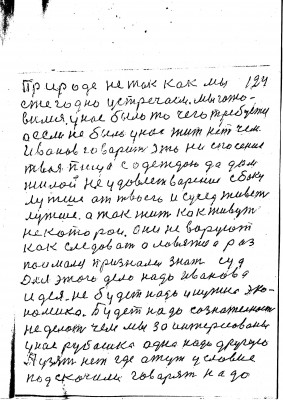 Природе не так как мы 124
ежегодно встречаем. мы гото-
вимся, у нас было то чего требуется
а если не было у нас жит нет чем
Иванов говарит это ни спосение
твая пища с одеждою да дом
жилой не удовлетварение сбоку
лутше от твоего и сусед живет
лутше. а так жит как живут
некоторои. они не варуют
как следоват а ловят а раз
поимали признали знат суд
Для этого дело надо Иванова
идея. не будет надо и нужна эко-
номика. Будет надо сознателност
не делают чем мы заинтересованы
у нас рубашка одна надо другую
нет где
подскочили говарят надо